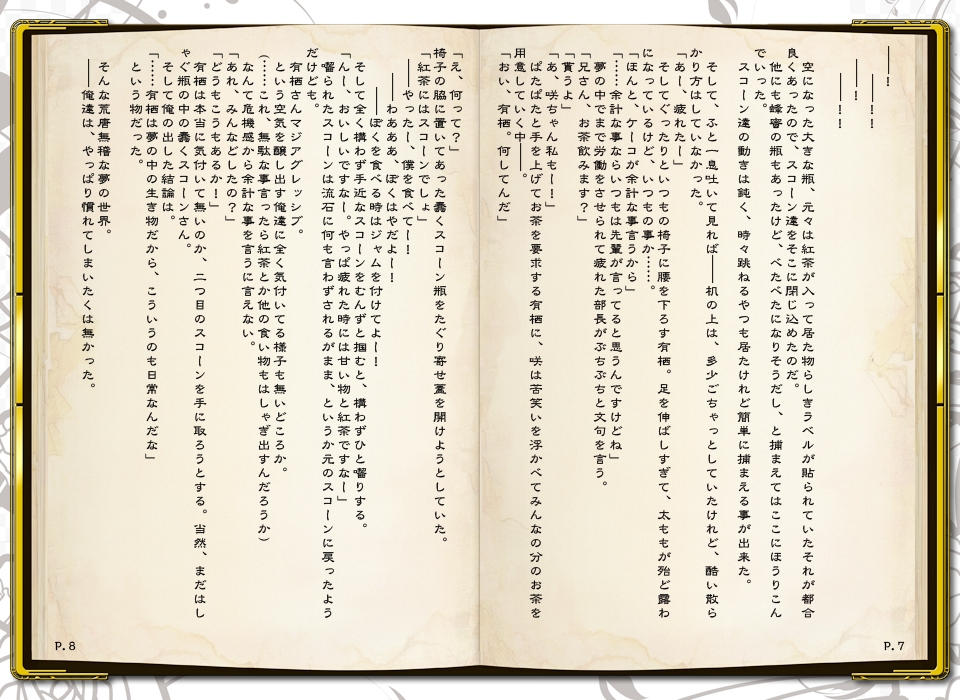 ――！
――！！
――！
――！！
空になった大きな瓶、元々は紅茶が入って居た物らしきラベルが貼られていたそれが都合
良くあったので、スコーン達をそこに閉じ込めたのだ。
他にも蜂蜜の瓶もあったけど、べたべたになりそうだし、と捕まえてはここにほうりこん
でいった。
スコーン達の動きは鈍く、時々跳ねるやつも居たけれど簡単に捕まえる事が出来た。
そして、ふと一息吐いて見れば――机の上は、多少ごちゃっとしていたけれど、酷い散ら
かり方はしていなかった。
「あー、疲れたー」
そしてぐったりといつもの椅子に腰を下ろす有栖。足を伸ばしすぎて、太ももが殆ど露わ
になっているけど、いつもの事か……。
「ほんと、ケーコが余計な事言うから」
「……余計な事ならいつもは先輩が言ってると思うんですけどね」
夢の中まで労働をさせられて疲れた部長がぶちぶちと文句を言う。
「兄さん、お茶飲みます？」
「貰うよ」
「あ、咲ちゃん私もー！」
ぱたぱたと手を上げてお茶を要求する有栖に、咲は苦笑いを浮かべてみんなの分のお茶を
用意していく中――。
「おい、有栖。何してんだ」
P.7
「え、何って？」
椅子の脇に置いてあった蠢くスコーン瓶をたぐり寄せ蓋を開けようとしていた。
「紅茶にはスコーンでしょ」
――やったー、僕を食べてー！
――わあああ、ぼくはやだよー！
――ぼくを食べる時はジャムを付けてよー！
そして全く構わず手近なスコーンをむんずと掴むと、構わずひと齧りする。
「んー、おいしいですなー。やっぱ疲れた時には甘い物と紅茶ですなー」
齧られたスコーンは流石に何も言わずされるがまま、というか元のスコーンに戻ったよう
だけども。
有栖さんマジアグレッシブ。
という空気を醸し出す俺達に全く気付いてる様子も無いどころか。
（……これ、無駄な事言ったら紅茶とか他の食い物もはしゃぎ出すんだろうか）
なんて危機感から余計な事を言うに言えない。
「あれ、みんなどしたの？」
「どうもこうもあるか！」
有栖は本当に気付いて無いのか、二つ目のスコーンを手に取ろうとする。当然、まだはし
ゃぐ瓶の中の蠢くスコーンさん。
そして俺の出した結論は。
「……有栖は夢の中の生き物だから、こういうのも日常なんだな」
という物だった。

そんな荒唐無稽な夢の世界。
――俺達は、やっぱり慣れてしまいたくは無かった。
P.8